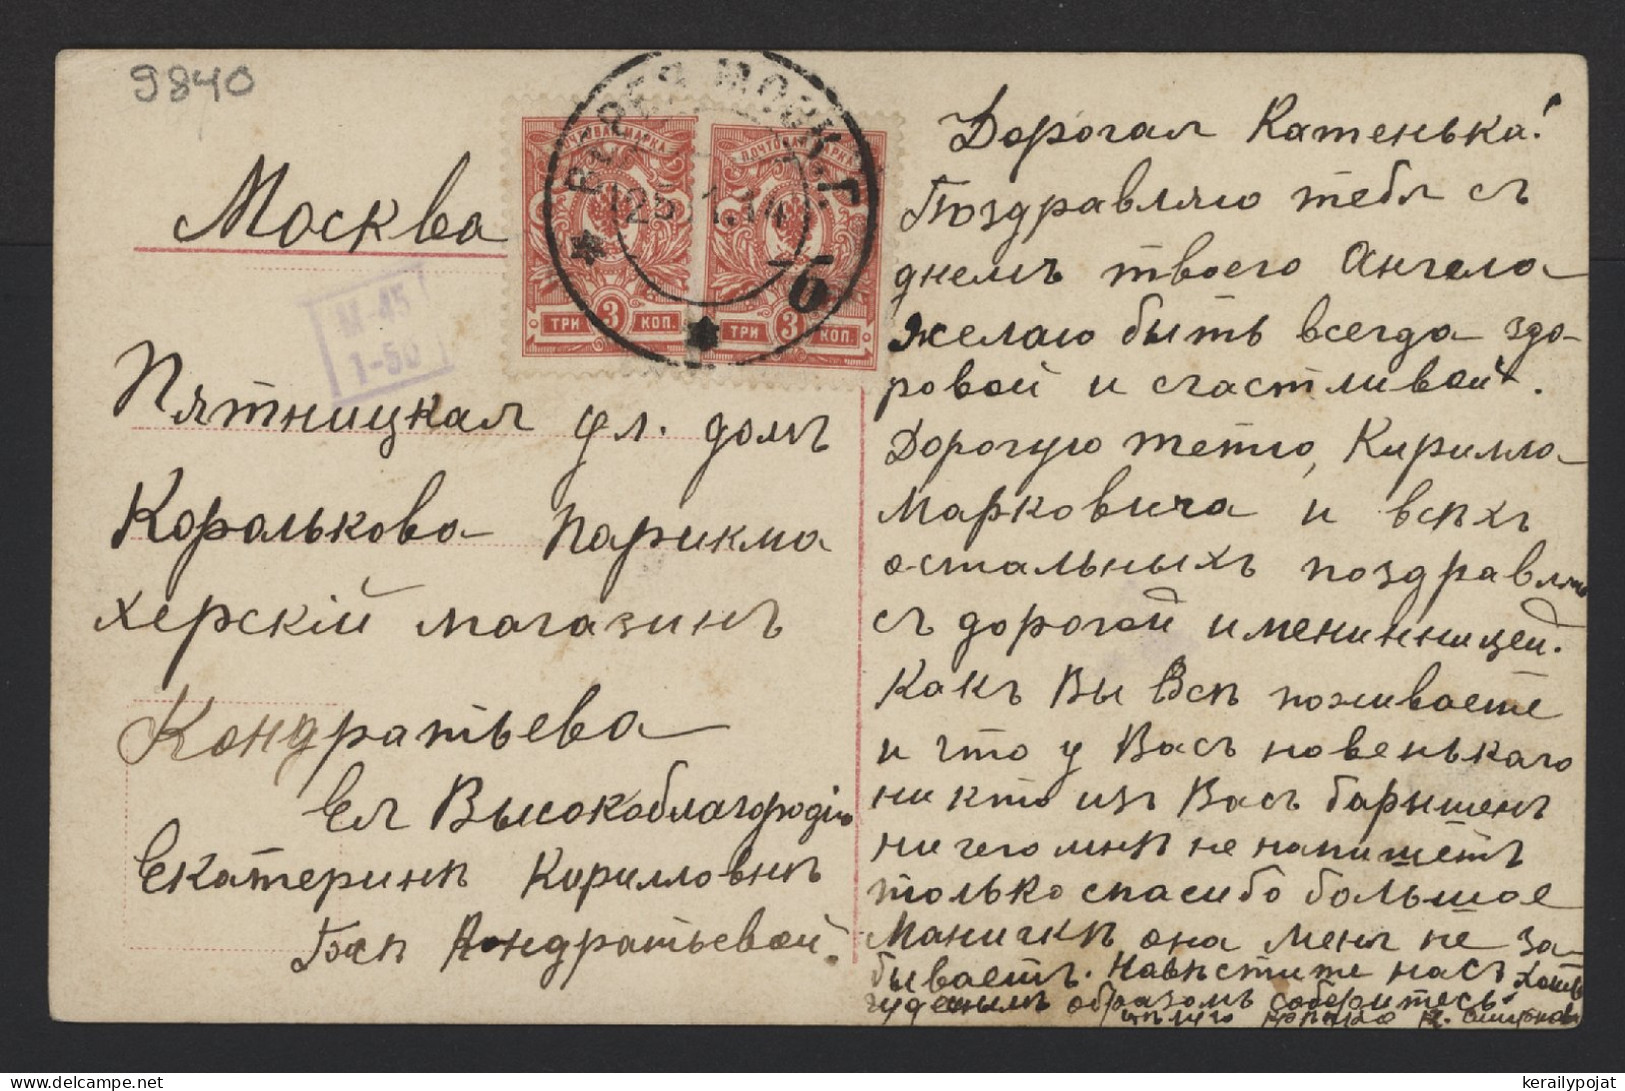 9840
Москва
ПОЧТОВАЯ МАРКА
ПОЧТОВАЯ МАРКА
ВЕРЕЯ МОСК. Г.
25 1 14
б
3
ТРИ КОП.
3
ТРИ КОП.
М-45
1-50
Пятницкая ул. домъ
Коралькова Парикма
херскій магазинъ
Кондратьева
Ея Высокоблагородію
Екатеринѣ Кирилловнѣ
Г-жѣ Кондратьевой.
Дорогая Катенька!
Поздравляю тебя съ
днемъ твоего Ангела
желаю быть всегда здо-
ровой и счастливой.
Дорогую тетю, Кирилла
Марковича и всѣхъ
остальныхъ поздравляю
съ дорогой именинницей.
Какъ Вы Всѣ поживаете
и что у Васъ новенькаго
никто изъ Васъ барышенъ
ничего мнѣ не напишетъ
только спасибо большое
Маничкѣ она меня не за-
бываетъ. Навѣстите насъ хоть
чудеснымъ образомъ соберитесь.
цѣлую крѣпко
kerailypojat
www.delcampe.net